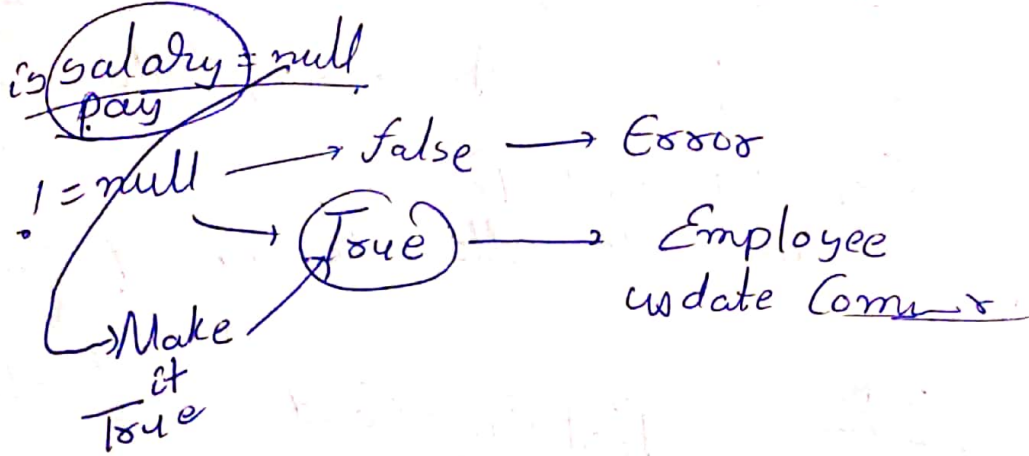 is salary = null
pay
! = null → false → Error
→ True → Employee
update
→ Make
it
True